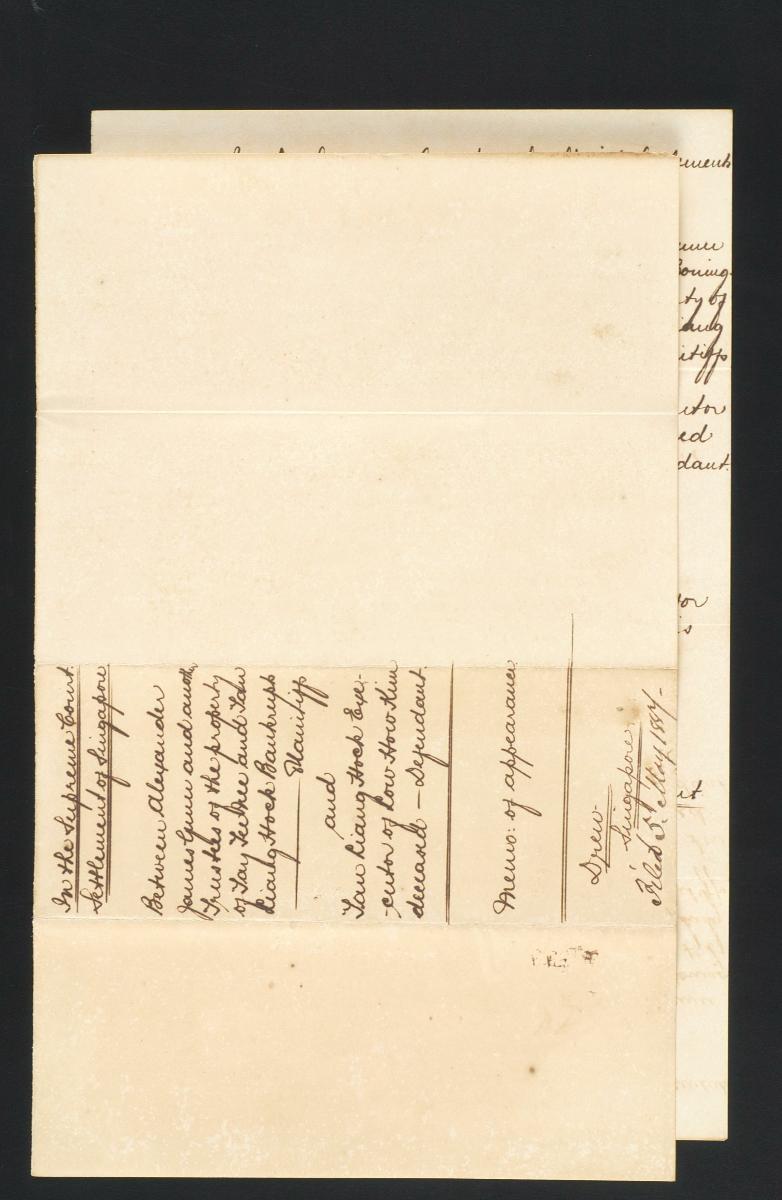 In the Supreme Court.
Settlement of Singapore
Between Alexander
James Gunn and another
Trustees of the property
of Tay Tee Hee and Tan
Kiang Hock Bankrupts
Plaintiff
and
Tan Kiang Hock Exe-
cutor of Low How Kim
deceased – Defendant.
Memo: of appearance
Drew
Singapore.
Filed 5th May 1887-